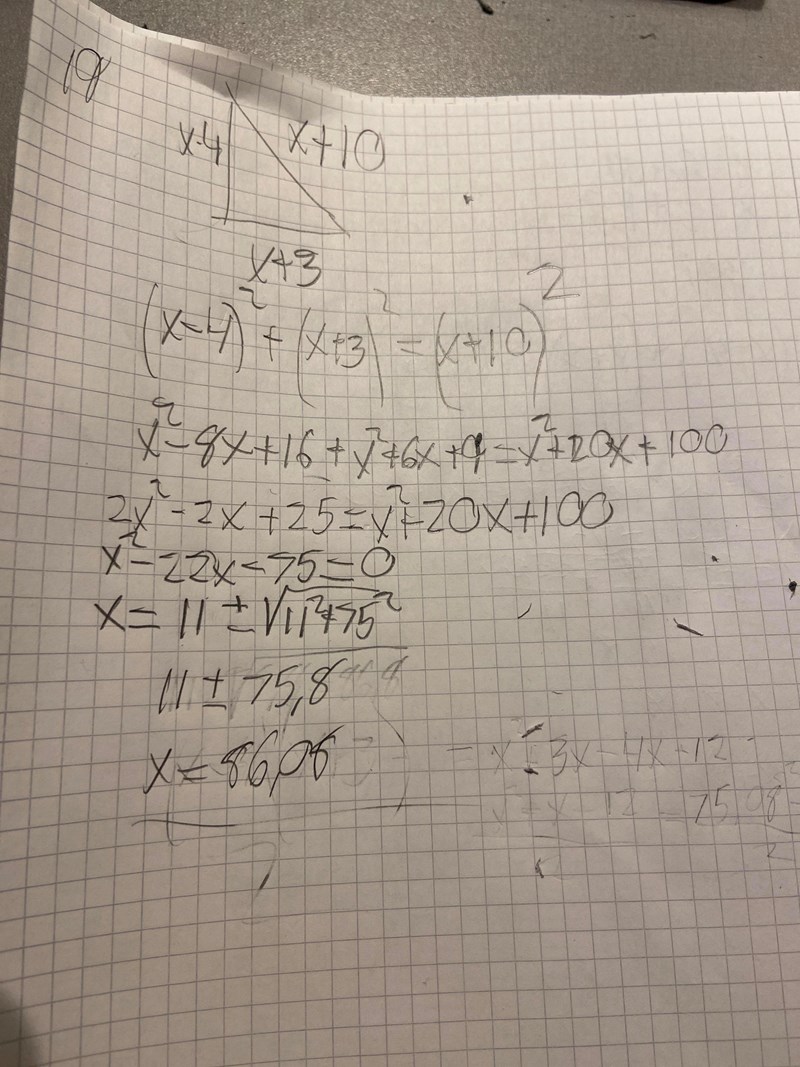 19
x-4
x+10
x+3
(x-4)² + (x+3)² = (x+10)²
x²-8x+16+x²+6x+9=x²+20x+100
2x²-2x+25=x²+20x+100
x²-22x-75=0
x= 11 ± √11²+75²
11 ± 75,8
x= 86,08